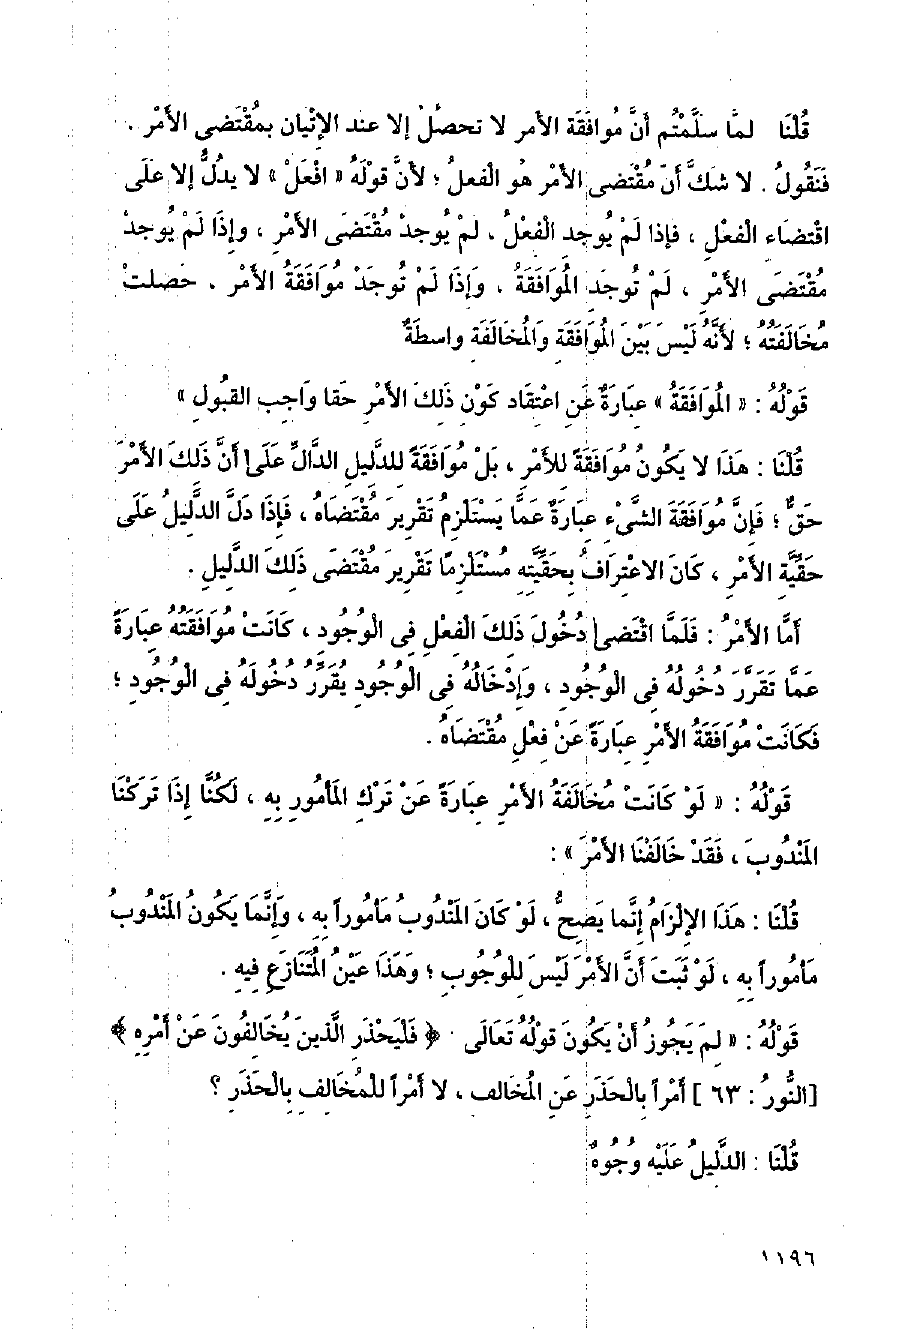 قُلْنَا لمَّا سلَّمْتُم أنَّ مُوافَقَة الأمر لا تحصلُ إلا عند الإتْيان بمقْتَضى الأمْر .
فَنَقُولُ . لا شكَّ أنّ مُقْتَضى الأمْر هو الْفعلُ ؛ لأنَّ قولَهُ « افْعَلْ » لا يدُلُّ إلا علَى
اقْتضاء الْفعْل ، فإذا لَمْ يُوجد الْفعْلُ ، لمْ يُوجدْ مُقْتَضَى الأمْر ، وإذَا لَمْ يُوجدْ
مُقْتَضَى الأمْر ، لَمْ تُوجَد الْمُوافَقَةُ ، وَإذَا لَمْ تُوجَدْ مُوَافَقَةُ الأمْر . حَصلتْ
مُخَالَفَتُهُ ؛ لأنَّهُ لَيْسَ بَيْنَ الْمُوَافَقَة وَالْمُخَالَفَة واسطَةٌ
قَوْلُهُ : « الْمُوَافَقَةُ » عبَارَةٌ عَن اعْتقَاد كَوْن ذَلكَ الأمْر حَقا وَاجب القبُول »
قُلْنَا : هَذَا لا يَكُونُ مُوَافَقَةً للأمْر ، بَلْ مُوَافَقَةً للدَّليل الدَّالِّ عَلَى أنَّ ذَلكَ الأمْرَ
حَقٌّ ؛ فَإنَّ مُوَافَقَةَ الشَّىْء عبَارَةٌ عَمَّا يَسْتَلْزِمُ تَقْرِيرَ مُقْتَضَاهُ ، فَإذَا دَلَّ الدَّليلُ عَلَى
حَقِّيَّة الأمْرِ ، كَانَ الاعْترَافُ بحَقِّيَّته مُسْتَلْزمًا تَقْرِيرَ مُقْتَضَى ذَلكَ الدَّليل .
أمَّا الأمْرُ : فَلَمَّا اقْتَضَى دُخُولَ ذَلكَ الْفعْل فى الْوُجُود ، كَانَتْ مُوَافَقَتُهُ عبَارَةً
عَمَّا تَقَرَّرَ دُخُولُهُ فى الْوُجُود ، وَإدْخَالُهُ فى الْوُجُود يُقَرِّرُ دُخُولَهُ فى الْوُجُود ؛
فَكَانَتْ مُوَافَقَةُ الأمْرِ عبَارَةً عَنْ فعْل مُقْتَضَاهُ .
قَوْلُهُ : « لَوْ كَانَتْ مُخَالَفَةُ الأمْرِ عبَارَةً عَنْ تَرْك الْمَأمُورِ به ، لَكُنَّا إذَا تَرَكْنَا
الْمَنْدُوبَ ، فَقَدْ خَالَفْنَا الأمْرَ » :
قُلْنَا : هَذَا الإلْزَامُ إنَّمَا يَصحُّ ، لَوْ كَانَ الْمَنْدُوبُ مَأْمُوراً به ، وَإنَّمَا يَكُونُ الْمَنْدُوبُ
مَأمُوراً به ، لَوْ ثَبَتَ أنَّ الأمْرَ لَيْسَ للْوُجُوب ؛ وَهَذَا عَيْنُ الْمُتَنَازَعِ فيه .
قَوْلُهُ : « لمَ يَجُوزُ أنْ يَكُونَ قَوْلُهُ تَعَالَى ﴿ فَلْيَحْذَر الَّذينَ يُخَالفُونَ عَنْ أمْره ﴾
[النُّورُ : ٦٣ ] أمْراً بالْحَذَرِ عَن الْمُخَالف ، لا أمْراً للْمُخَالف بالْحَذَر ؟
قُلْنَا : الدَّليلُ عَلَيْه وُجُوهٌ
١١٩٦